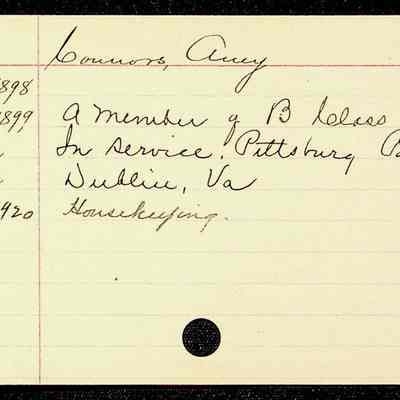 Connors, Amy
1898
1899 A member of B Class
In service, Pittsburg Pa
Dublin, Va
1920 Housekeeping.